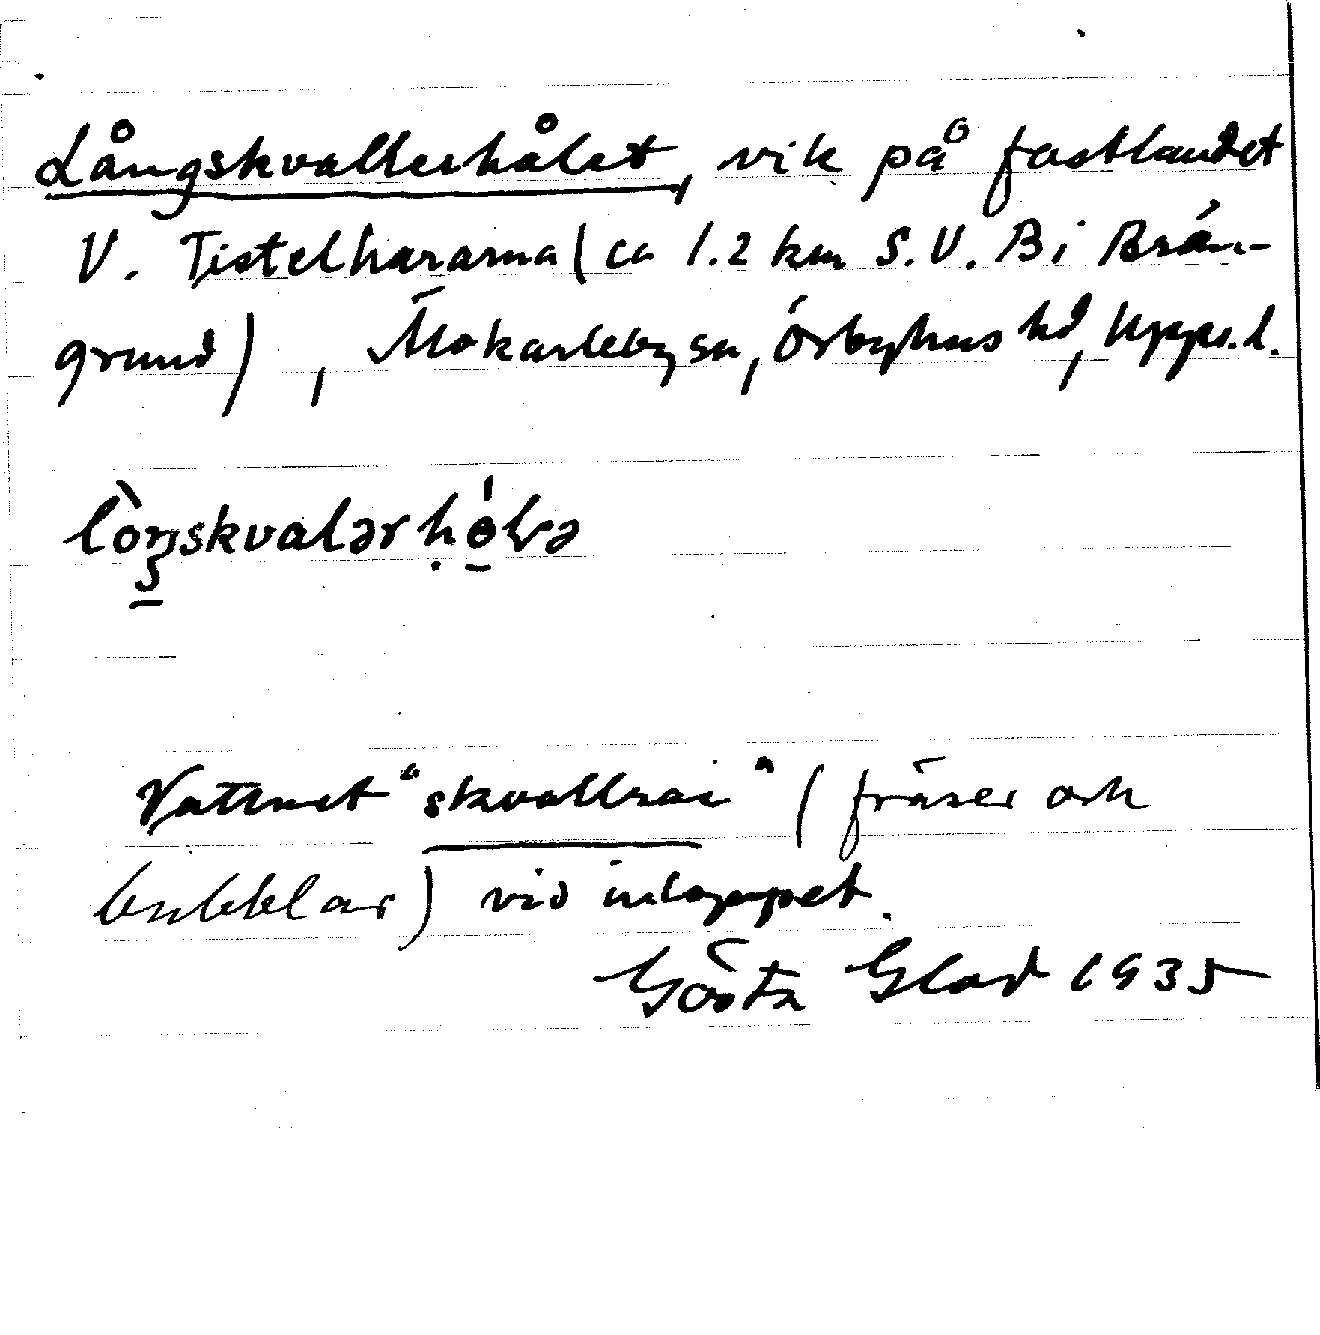 Långskvallerhålet, vik på fastlandet
V. Tistelhararna (ca 1.2 km S.V. B i Brän-
grund), Älvkarleby sn, Örbyhus hd, Upps. l.
lòŋskvalər hó̱lə
Vattnet "skvallrar" (fräser och
bubblar) vid inloppet.
Gösta Glad 1935